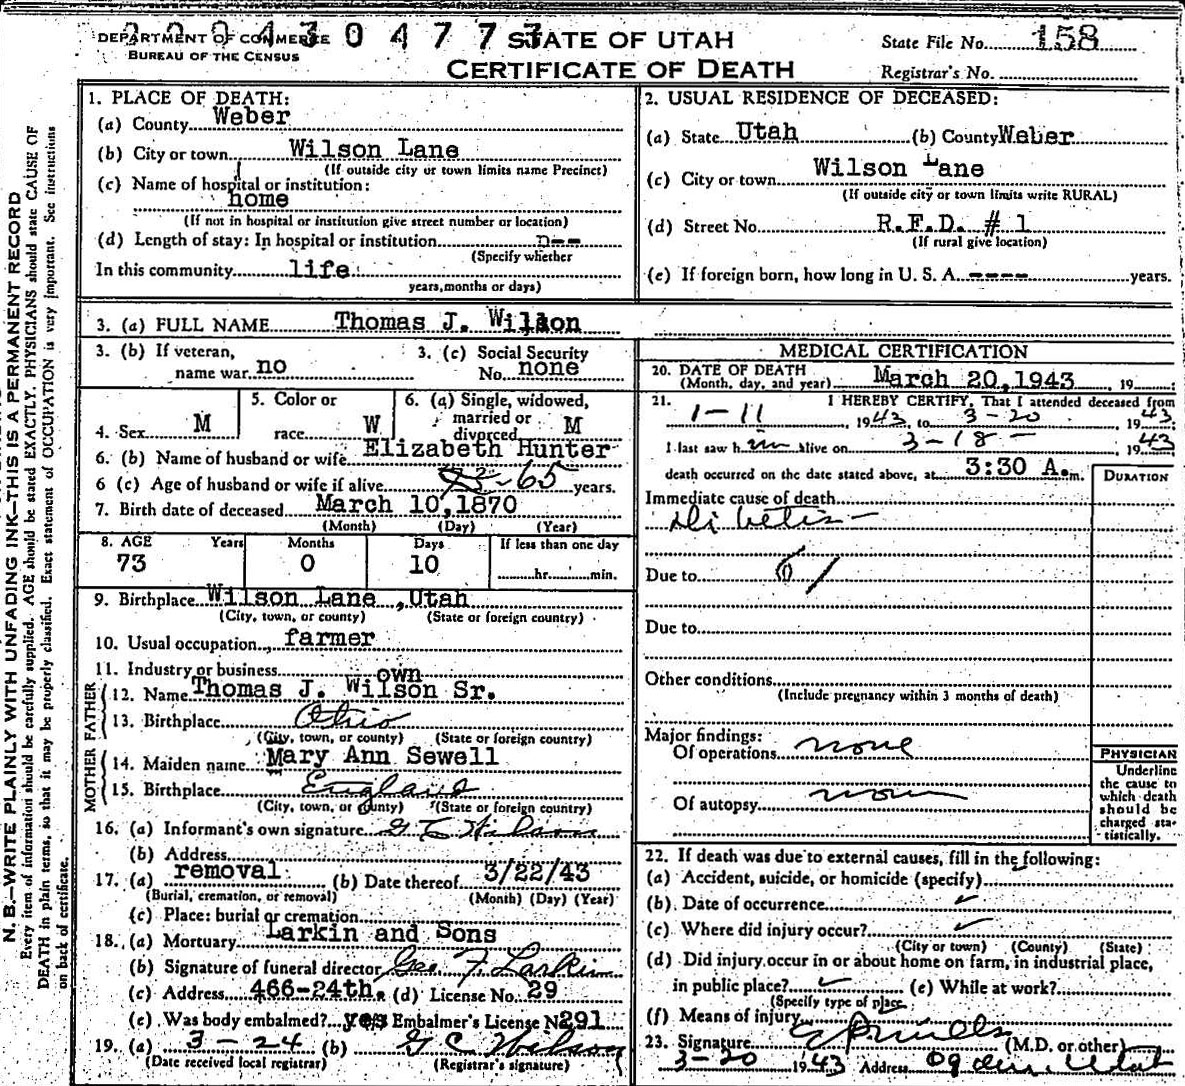 2 0 0 4 3 0 4 7 7 3
DEPARTMENT OF COMMERCE
BUREAU OF THE CENSUS
STATE OF UTAH
CERTIFICATE OF DEATH
State File No. 158
Registrar's No.
N. B.—WRITE PLAINLY WITH UNFADING INK—THIS IS A PERMANENT RECORD
Every item of information should be carefully supplied. AGE should be stated EXACTLY. PHYSICIANS should state CAUSE OF
DEATH in plain terms, so that it may be properly classified. Exact statement of OCCUPATION is very important. See instructions
on back of certificate.
1. PLACE OF DEATH:
(a) County Weber
(b) City or town Wilson Lane
(If outside city or town limits name Precinct)
(c) Name of hospital or institution:
home
(If not in hospital or institution give street number or location)
(d) Length of stay: In hospital or institution
(Specify whether
In this community life
years, months or days)
2. USUAL RESIDENCE OF DECEASED:
(a) State Utah (b) County Weber
(c) City or town Wilson Lane
(If outside city or town limits write RURAL)
(d) Street No. R.F.D. # 1
(If rural give location)
(e) If foreign born, how long in U. S. A. ---- years.
3. (a) FULL NAME Thomas J. Wilson
3. (b) If veteran,
name war no
3. (c) Social Security
No. none
4. Sex M
5. Color or
race W
6. (a) Single, widowed,
married or
divorced M
6. (b) Name of husband or wife Elizabeth Hunter
6 (c) Age of husband or wife if alive 65 years.
7. Birth date of deceased March 10,1870
(Month) (Day) (Year)
8. AGE Years Months Days If less than one day
73 0 10 hr. min.
9. Birthplace Wilson Lane ,Utah
(City, town, or county) (State or foreign country)
10. Usual occupation farmer
11. Industry or business own
FATHER
12. Name Thomas J. Wilson Sr.
13. Birthplace Ohio
(City, town, or county) (State or foreign country)
MOTHER
14. Maiden name Mary Ann Sewell
15. Birthplace England
(City, town, or county) (State or foreign country)
16. (a) Informant's own signature G C Wilson
(b) Address
17. (a) removal (b) Date thereof 3/22/43
(Burial, cremation, or removal) (Month) (Day) (Year)
(c) Place: burial or cremation
18. (a) Mortuary Larkin and Sons
(b) Signature of funeral director Geo F. Larkin
(c) Address 466-24th. (d) License No. 29
(e) Was body embalmed? yes Embalmer's License N 291
19. (a) 3-24 (b) G C Wilson
(Date received local registrar) (Registrar's signature)
MEDICAL CERTIFICATION
20. DATE OF DEATH
(Month, day, and year) March 20,1943, 19
21. I HEREBY CERTIFY, That I attended deceased from
1-11, 1943, to 3-20, 1943;
I last saw him alive on 3-18-, 1943
death occurred on the date stated above, at 3:30 A. m.
DURATION
Immediate cause of death
Dibetis-
Due to
Due to
Other conditions
(Include pregnancy within 3 months of death)
Major findings:
Of operations none
Of autopsy none
PHYSICIAN
Underline
the cause to
which death
should be
charged sta-
tistically.
22. If death was due to external causes, fill in the following:
(a) Accident, suicide, or homicide (specify)
(b) Date of occurrence
(c) Where did injury occur?
(City or town) (County) (State)
(d) Did injury occur in or about home on farm, in industrial place,
in public place? (e) While at work?
(Specify type of place)
(f) Means of injury
23. Signature (M.D. or other)
3-20 1943 Address Ogden, Utah